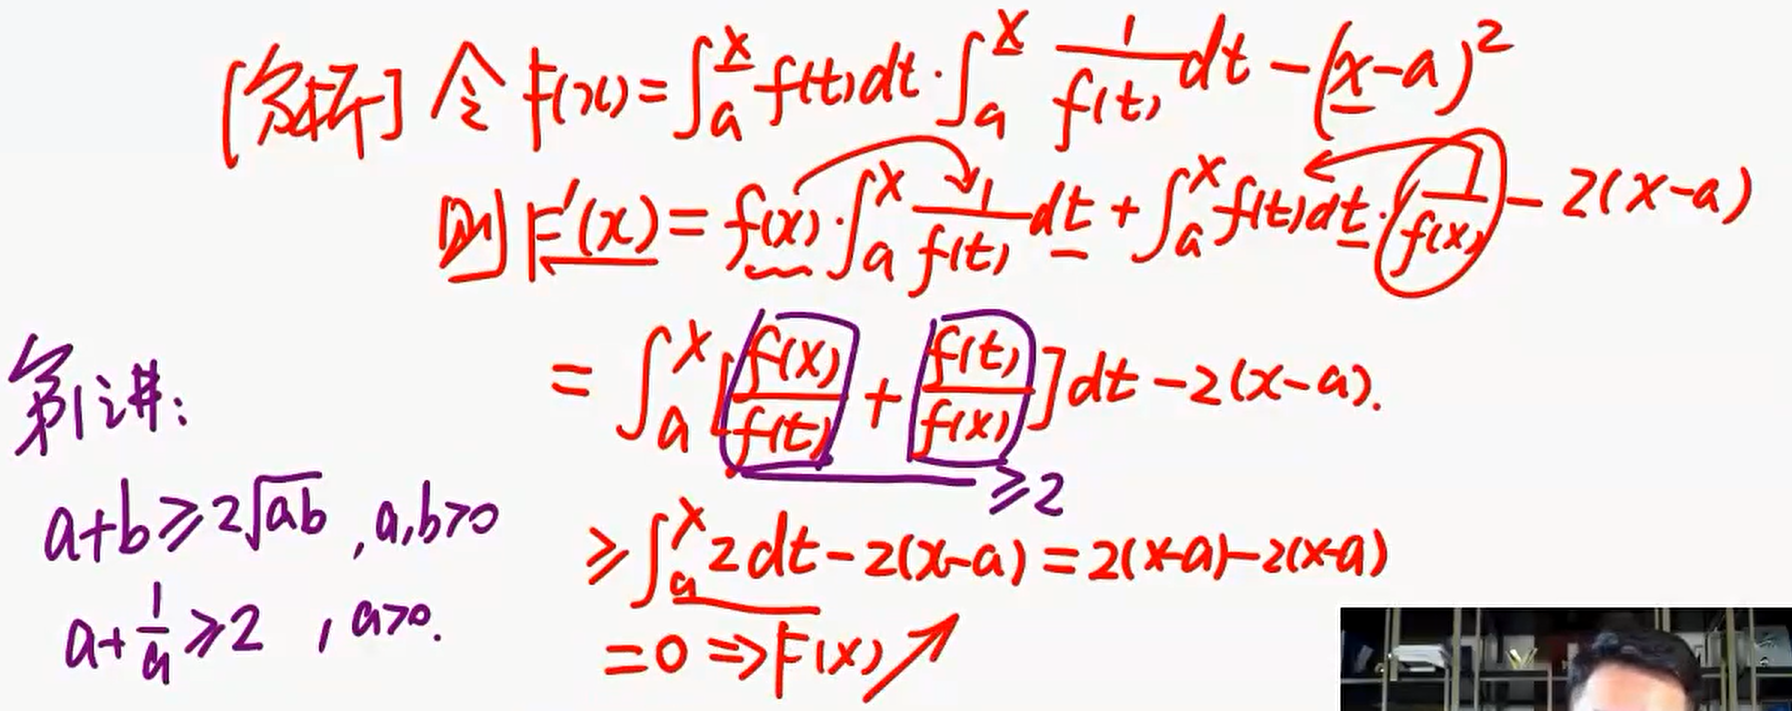 [解析] 令 F(x) = ∫_a^x f(t)dt · ∫_a^x 1/f(t) dt - (x-a)²
则 F'(x) = f(x) · ∫_a^x 1/f(t) dt + ∫_a^x f(t)dt · 1/f(x) - 2(x-a)
= ∫_a^x [f(x)/f(t) + f(t)/f(x)] dt - 2(x-a).
≥2
≥ ∫_a^x 2dt - 2(x-a) = 2(x-a) - 2(x-a)
= 0 ⇒ F(x) ↗
第1讲:
a+b ≥ 2√ab , a,b>0
a + 1/a ≥ 2 , a>0.